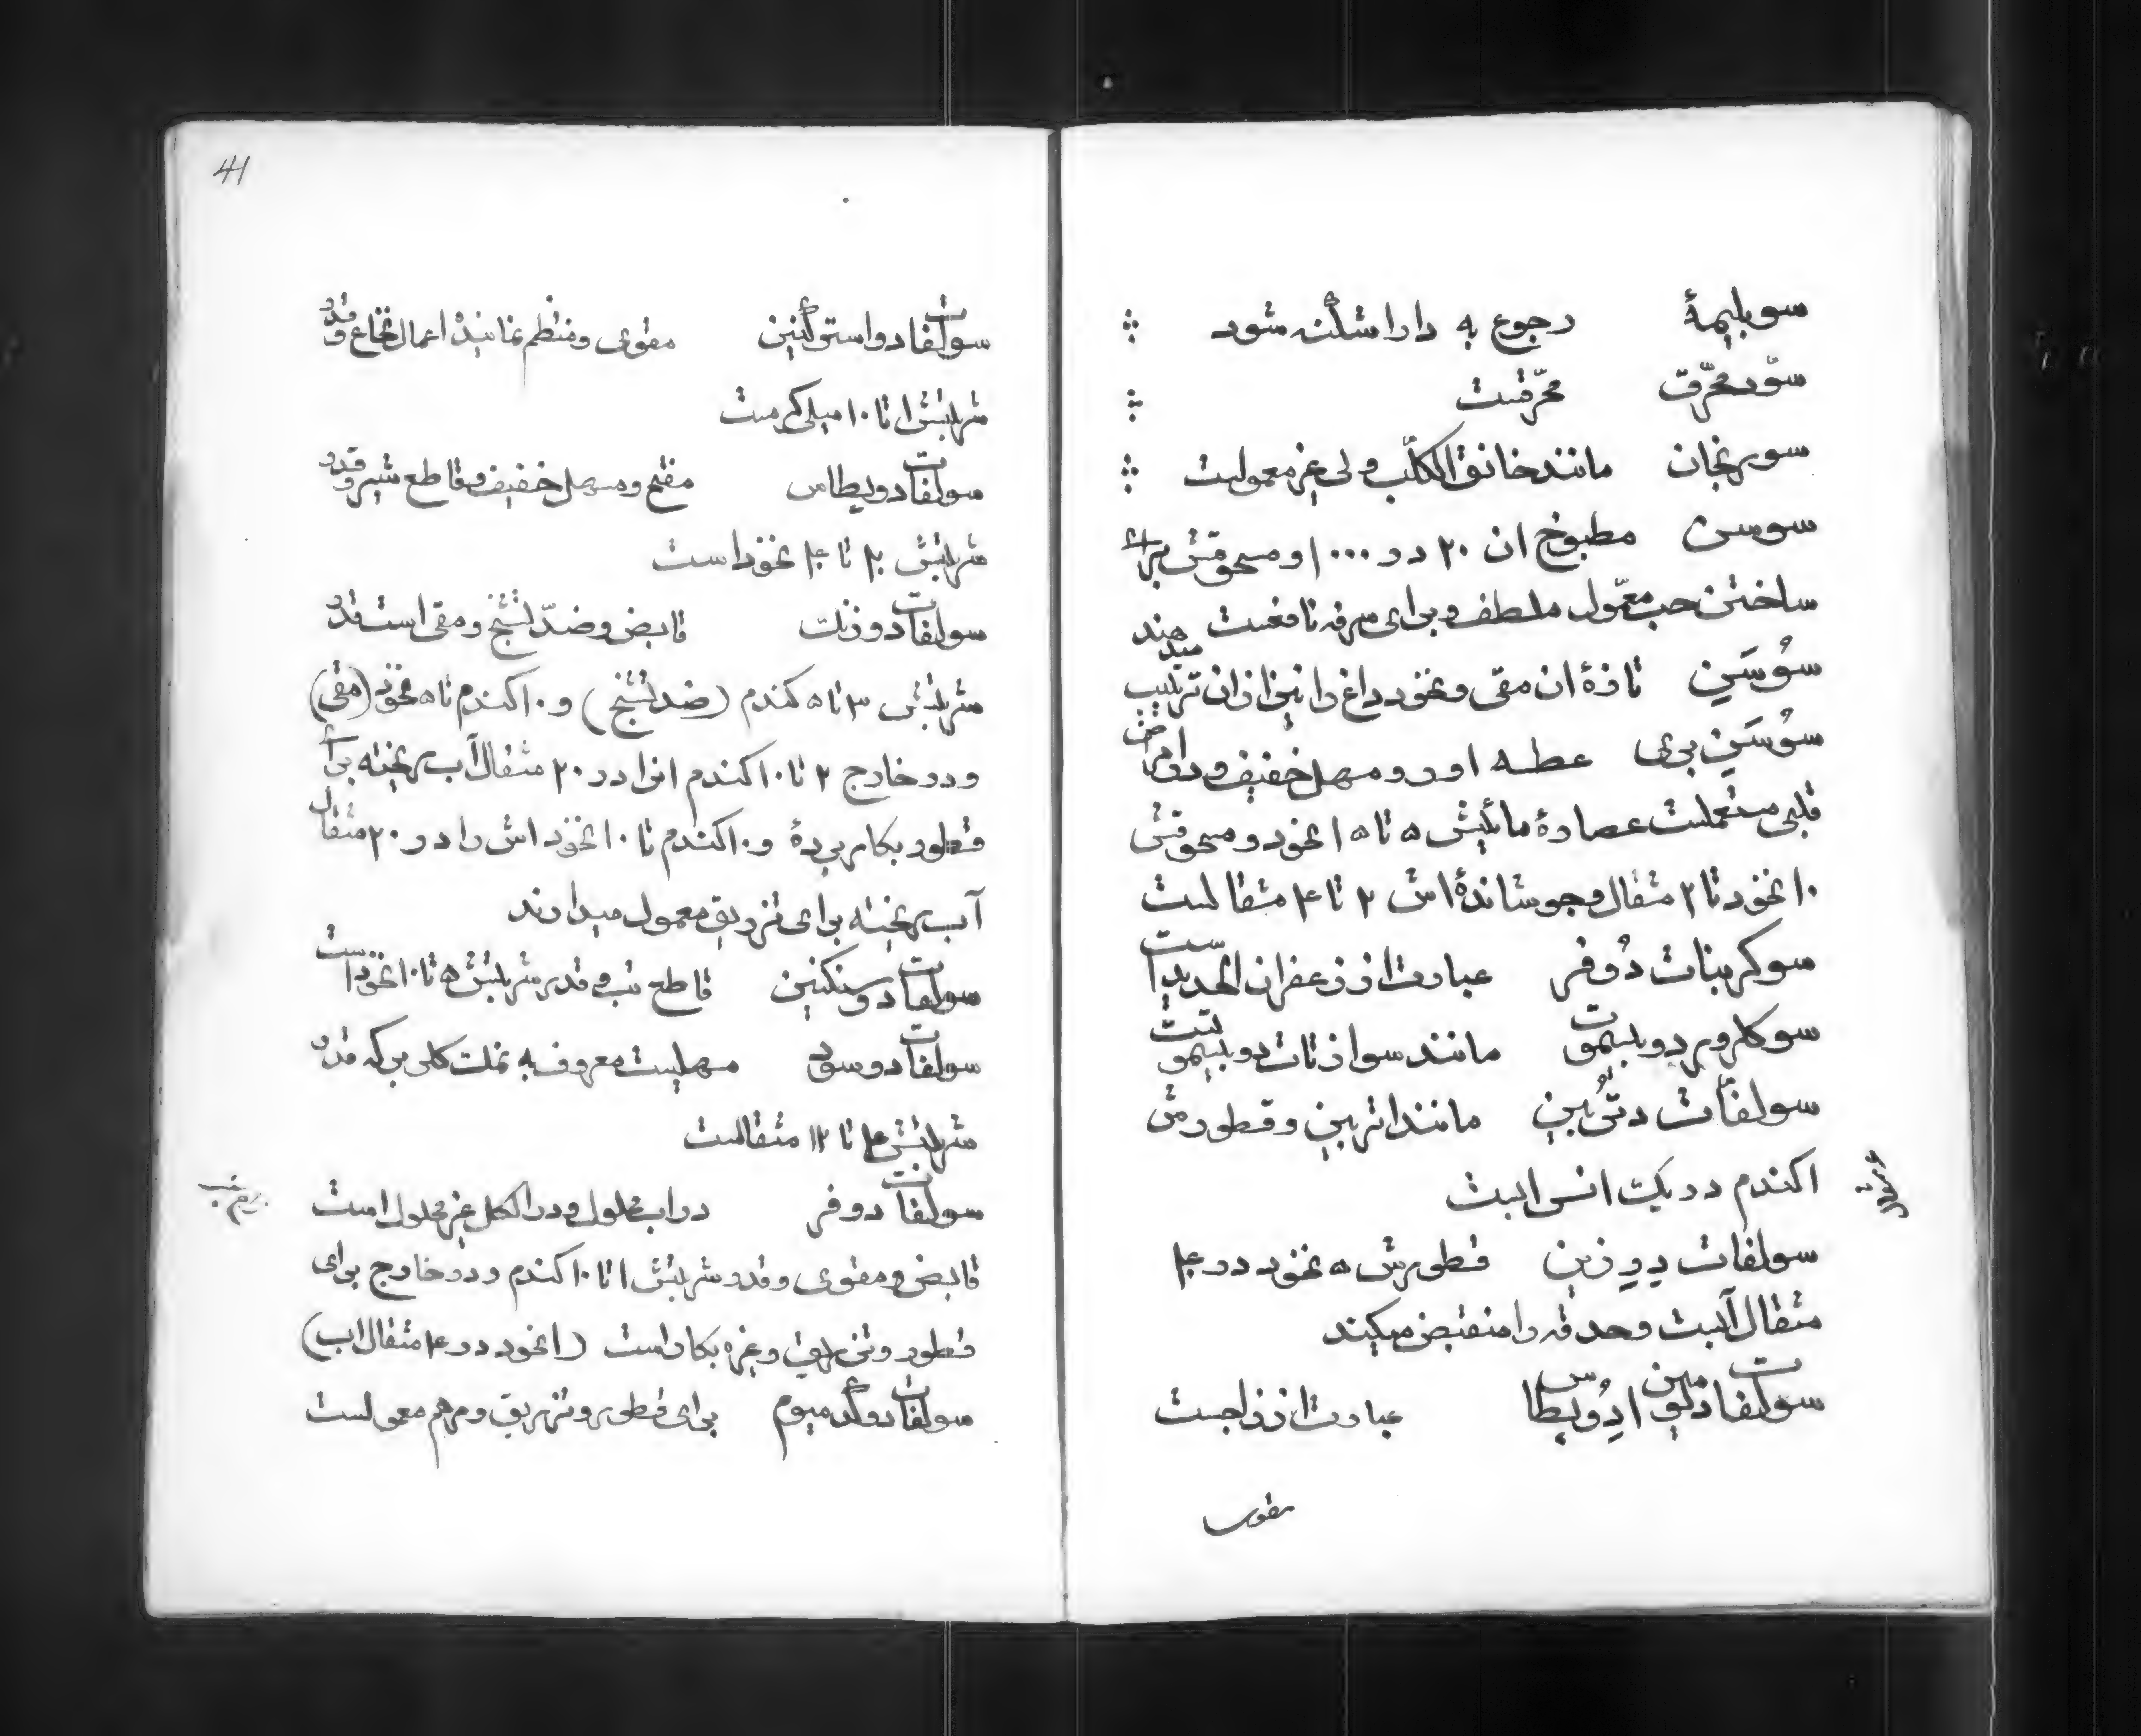 سوبلیمهٔ رجوع به داراشکنه شود
سوّد محرّق محرّقست
سورنجان مانند خانق الکلب ولی غیر معمولست
سوسن مطبوخ ان ۲۰ در ۱۰۰۰ و مسحوقش برای
ساختن حب معمّول ملطف و برای سرفه نافعست میدهند
سوُسَنِ تازهٔ ان مقی و نخود داغ را نیز ازان ترتیب
سوُسَنِ بری عطسه اور و مهسل خفیف و در امراض
قلبی مستعملست عصارهٔ مائیش ۵ تا ۱۵ نخود و مسحوقش
۱۰ نخود تا ۲ مثقال و جوشاندهٔ اش ۲ تا ۴ مثقالست
سوکربنات دُوفر عبارت از زعفران الحدید است
سوکلرور دوبیسموت مانند سوازتات دوبیسموتست
سولفات دتُربین مانند اتربین و قطورش
اکندم در یک انس ابست
سولفات دِزِرین قطورش ۵ نخود در ۴۰
مثقال آبست و حدقه را منقبض میکند
سولفات دلومین ادُوپطاس عبارت از زاجست
مقوی
41
سولفات دواستریکنین مقوی و منظم نمایندهٔ اعمال نخاع و قدر
شربتش ۱ تا ۱۰ میلی کرمست
سولفات دوپطاس مفتح و مسهل خفیف و قاطع شیر و قدر
شربتش ۲۰ تا ۴۰ نخود است
سولفات دوزنک قابض و ضدّ تشنج و مقی است قدر
شربتش ۳ تا ۵ کندم (ضد تشنج) و ۱۰ کندم تا ۵ نخود (مقی)
و در خارج ۲ تا ۱۰ کندم انرا در ۲۰ مثقال آب ریخته برای
قطور بکار برده و ۱۰ کندم تا ۱۰ نخود اش را در ۲۰ مثقال
آب ریخته برای تزریق معمول میدارند
سولفات دوسنکنین قاطع تب و قدر شربتش ۵ تا ۱۰ نخود است
سولفات دوسود مسهلیست معروف به نمک کلوبر که قدر
شربتش ۴ تا ۱۲ مثقالست
سولفات دوفر در اب محلول و در الکل غیر محلول است
قابض و مقوی و قدر شربتش ۱ تا ۱۰ کندم و در خارج برای
قطور و تزریق و غیره بکار است (۱ نخود در ۴ مثقال اب)
سولفات دوکدمیوم برای قطور و تزریق و مرهم معمولست